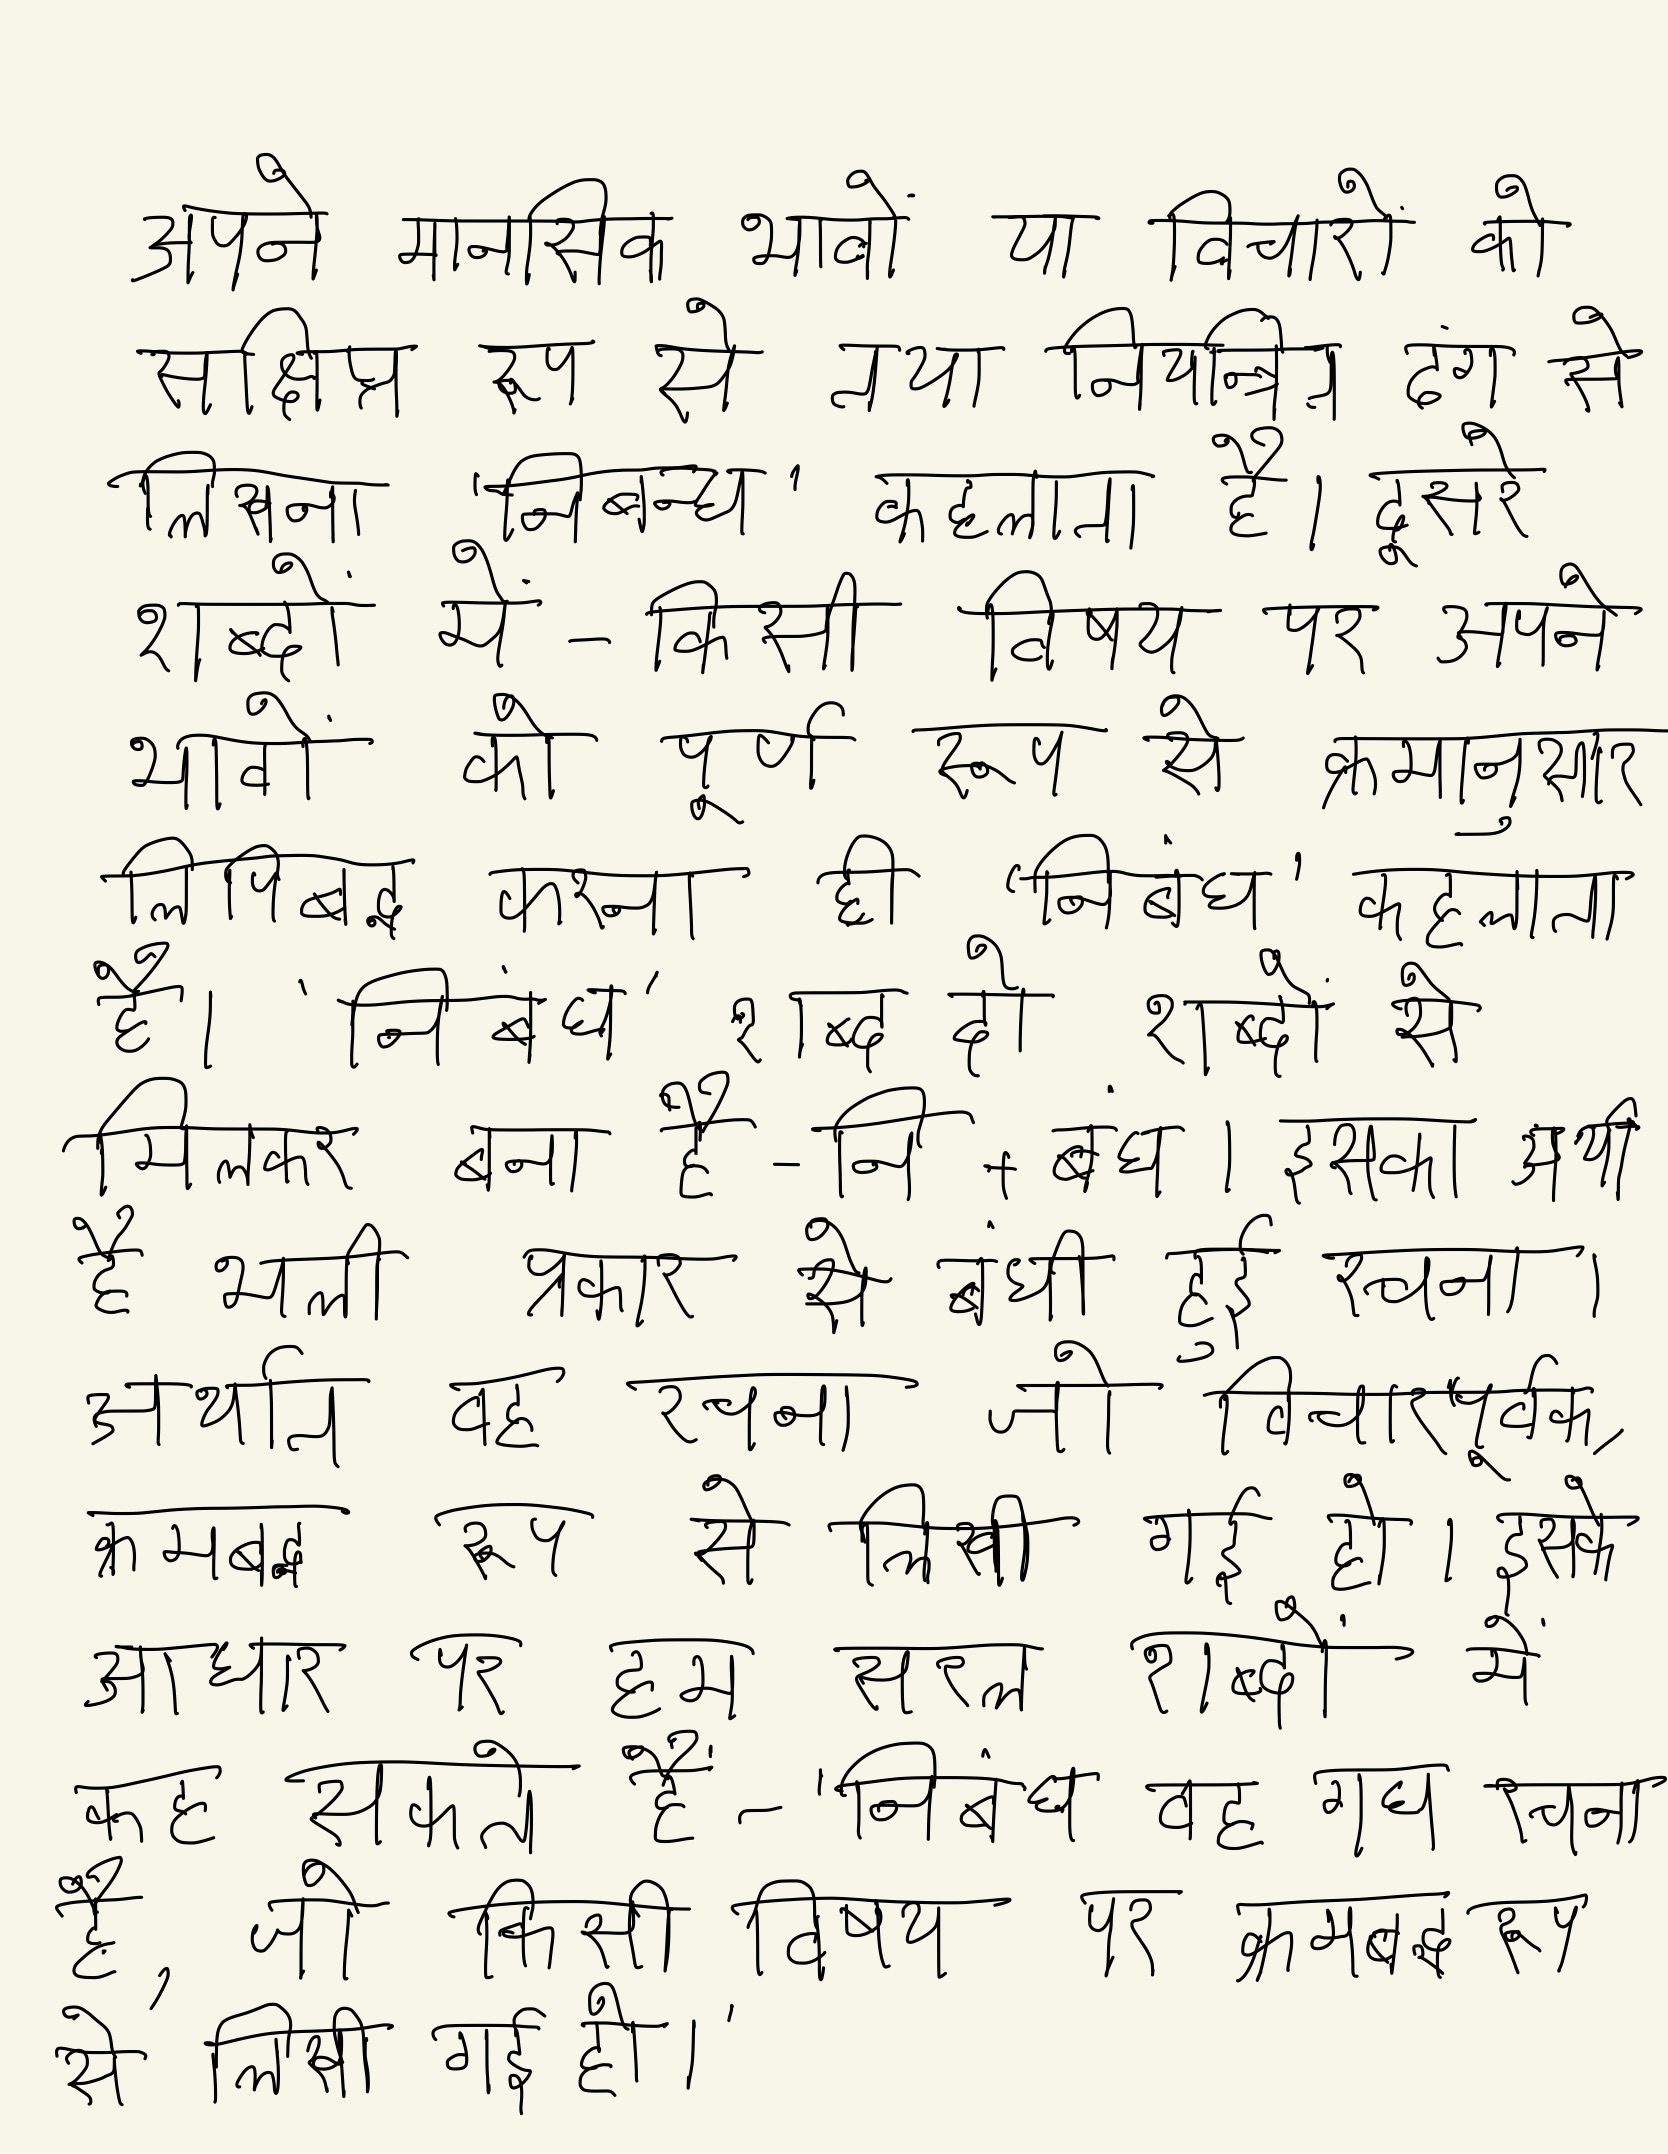 अपने मानसिक भावों या विचारों को
सक्षिप्त रूप से तथा नियन्त्रित ढंग से
लिखना 'निबन्ध' कहलाता है। दूसरे
शब्दों में - किसी विषय पर अपने
भावों को पूर्ण रूप से क्रमानुसार
लिपिबद्ध करना ही 'निबंध' कहलाता
है। 'निबंध' शब्द दो शब्दों से
मिलकर बना है - नि + बंध। इसका अर्थ
है भली प्रकार से बंधी हुई रचना।
अर्थात वह रचना जो विचारपूर्वक,
क्रमबद्ध रूप से लिखी गई हो। इसके
आधार पर हम सरल शब्दों में
कह सकते हैं - 'निबंध वह गद्य रचना
है, जो किसी विषय पर क्रमबद्ध रूप
से लिखी गई हो।'